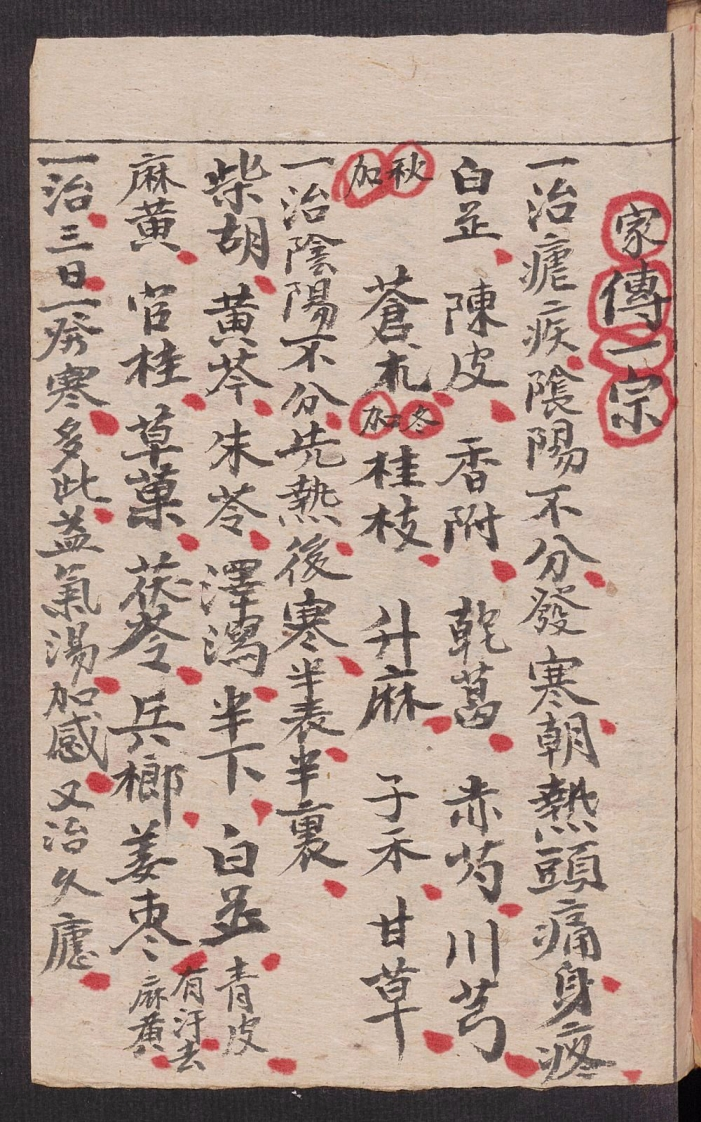 家傳一宗
一治瘧疾陰陽不分發寒朝熱頭痛身疼
白芷 陳皮 香附 乾葛 赤芍 川芎
秋加 蒼朮 冬加桂枝 升麻 子禾 甘草
一治陰陽不分先熱後寒半表半裏
柴胡 黃芩 朱苓 澤瀉 半下 白芷 青皮
麻黃 官桂 草菓 茯苓 兵榔 姜枣 有汗去麻黃
一治三日一發寒多此益氣湯加感又治久